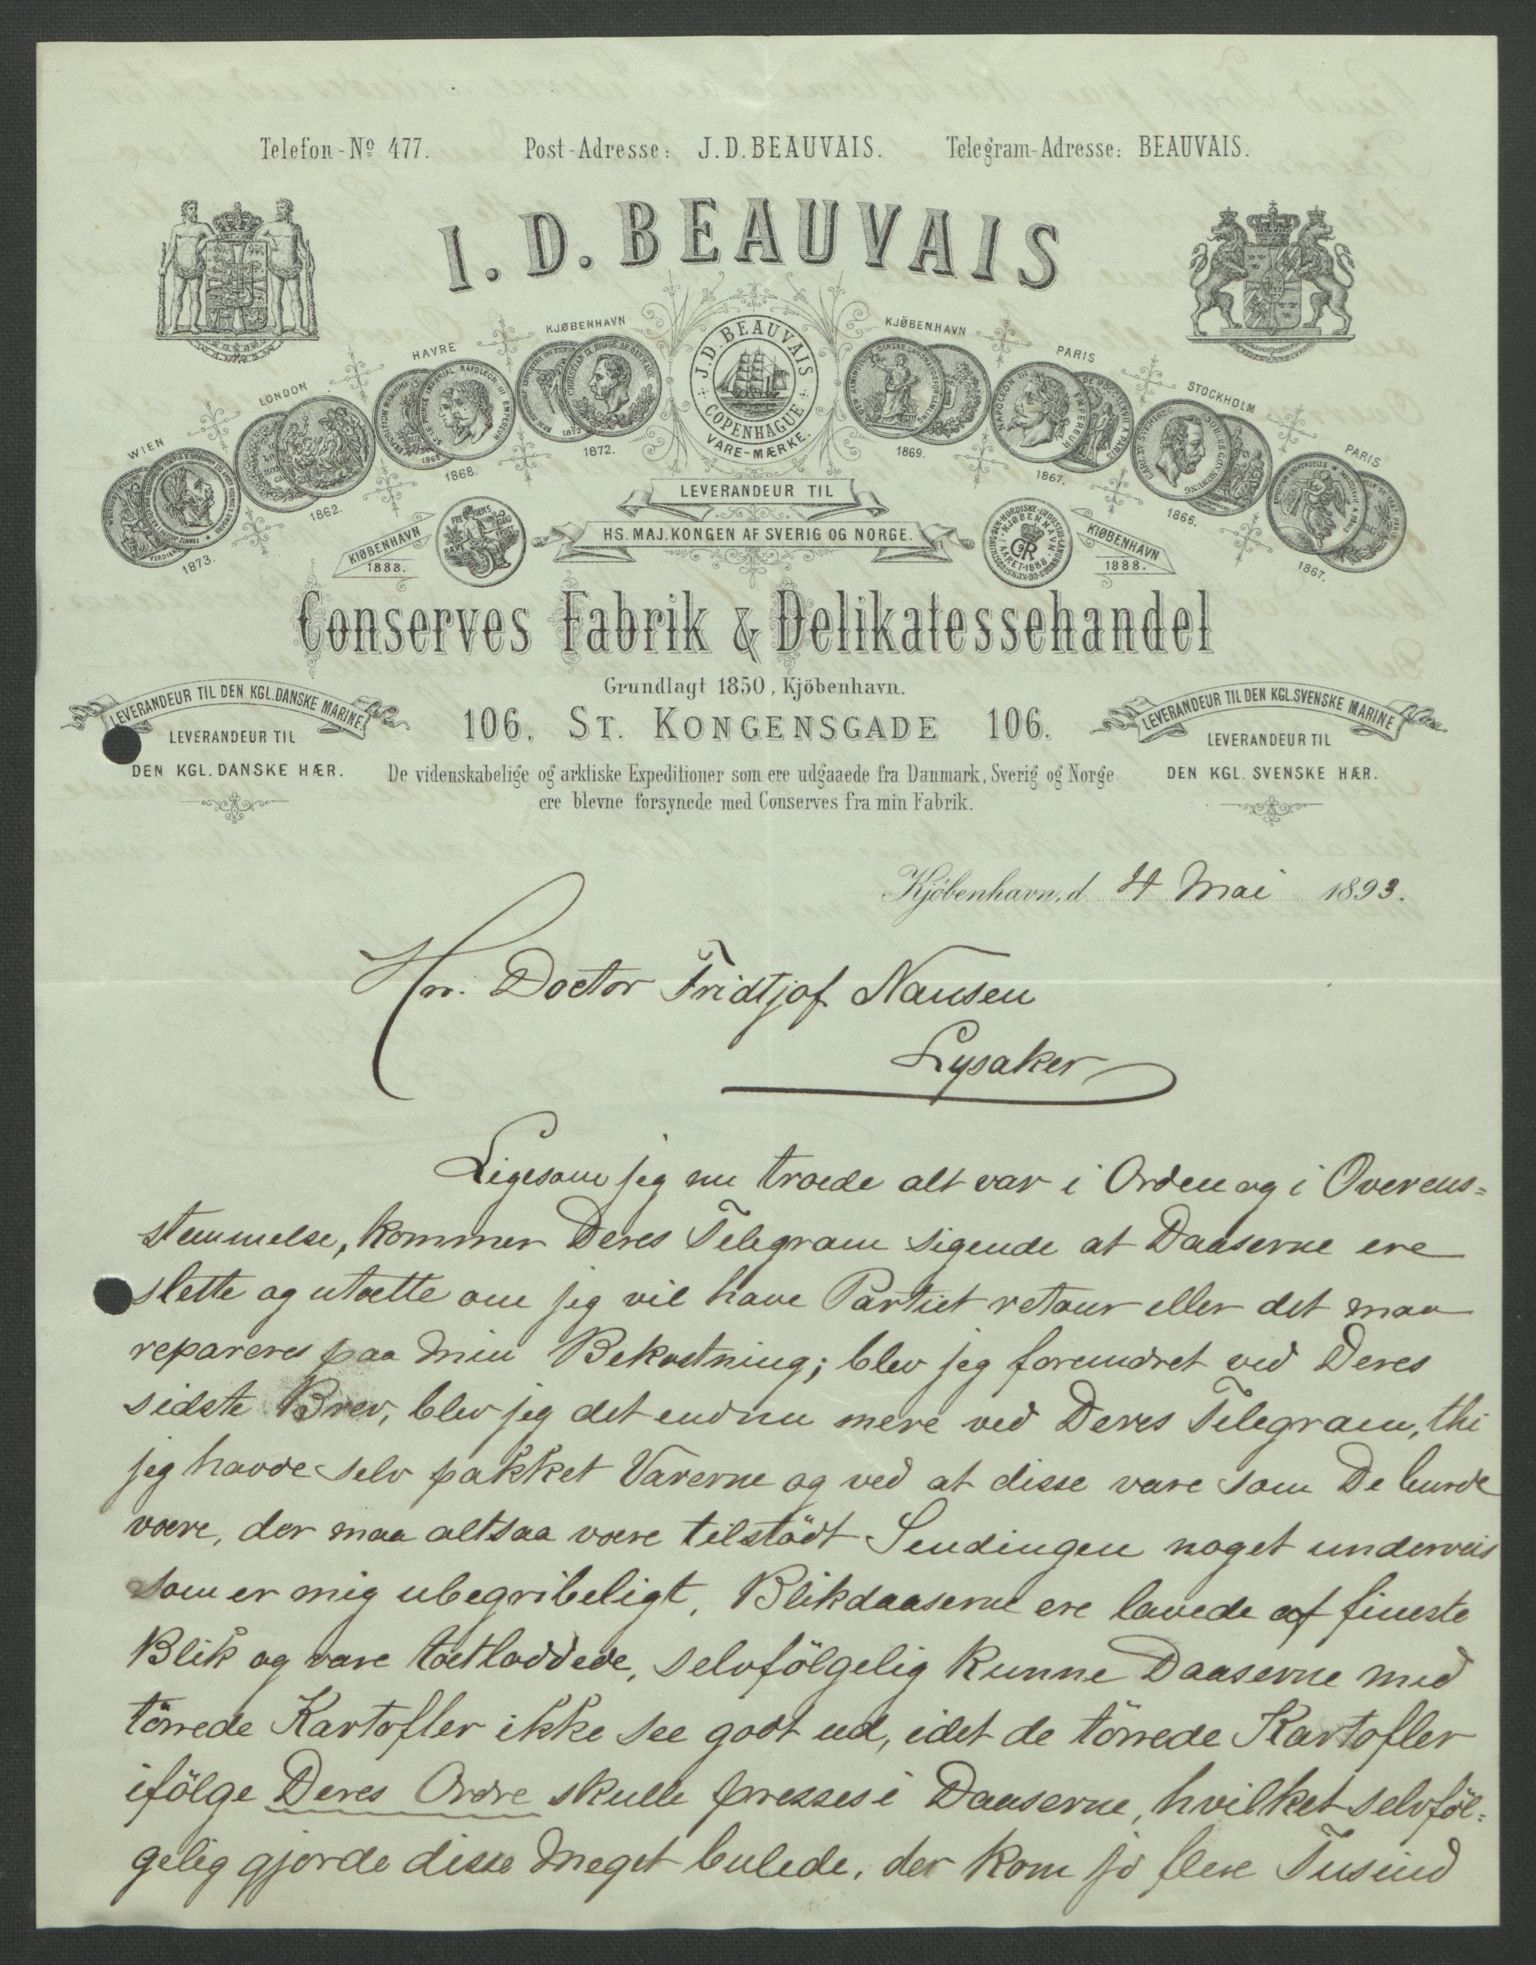 Telefon-No 477. Post-Adresse: J.D.BEAUVAIS. Telegram-Adresse: BEAUVAIS.
I. D. BEAUVAIS
WIEN 1873.
LONDON 1862.
HAVRE 1868.
KJØBENHAVN 1872.
J.D. BEAUVAIS COPENHAGUE
VARE-MÆRKE.
KJØBENHAVN 1869.
PARIS 1867.
STOCKHOLM 1866.
PARIS 1867.
LEVERANDEUR TIL
HS. MAJ. KONGEN AF SVERIG OG NORGE.
KIØBENHAVN 1888.
KIØBENHAVN 1888.
Conserves Fabrik & Delikatessehandel
Grundlagt 1850, Kjöbenhavn.
106. ST. KONGENSGADE 106.
LEVERANDEUR TIL DEN KGL. DANSKE MARINE.
LEVERANDEUR TIL
DEN KGL. DANSKE HÆR.
LEVERANDEUR TIL DEN KGL. SVENSKE MARINE
LEVERANDEUR TIL
DEN KGL. SVENSKE HÆR.
De videnskabelige og arktiske Expeditioner som ere udgaaede fra Danmark, Sverig og Norge
ere blevne forsynede med Conserves fra min Fabrik.
Kjöbenhavn, d. 4 Mai 1893.
Hrr. Doctor Fridtjof Nansen
Lysaker
Ligesom jeg nu troede alt var i Orden og i Overens=
stemmelse, kommer Deres Telegram sigende at Daaserne ere
slette og utætte om jeg vil have Partiet retour eller det maa
repareres paa min Bekostning; blev jeg forundret ved Deres
sidste Brev, blev jeg det endnu mere ved Deres Telegram, thi
jeg havde selv pakket Varerne og ved at disse vare som De burde
være, der maa altsaa være tilstödt Sendingen noget underveis
som er mig ubegribeligt. Blikdaaserne ere lavede af fineste
Blik og vare tætloddede, selvfölgelig kunne Daaserne med
törrede Kartofler ikke see godt ud, idet de törrede Kartofler
ifölge Deres Ordre skulle presses i Daaserne, hvilket selvföl=
gelig gjorde disse meget bulede, der kom jo flere Tusind